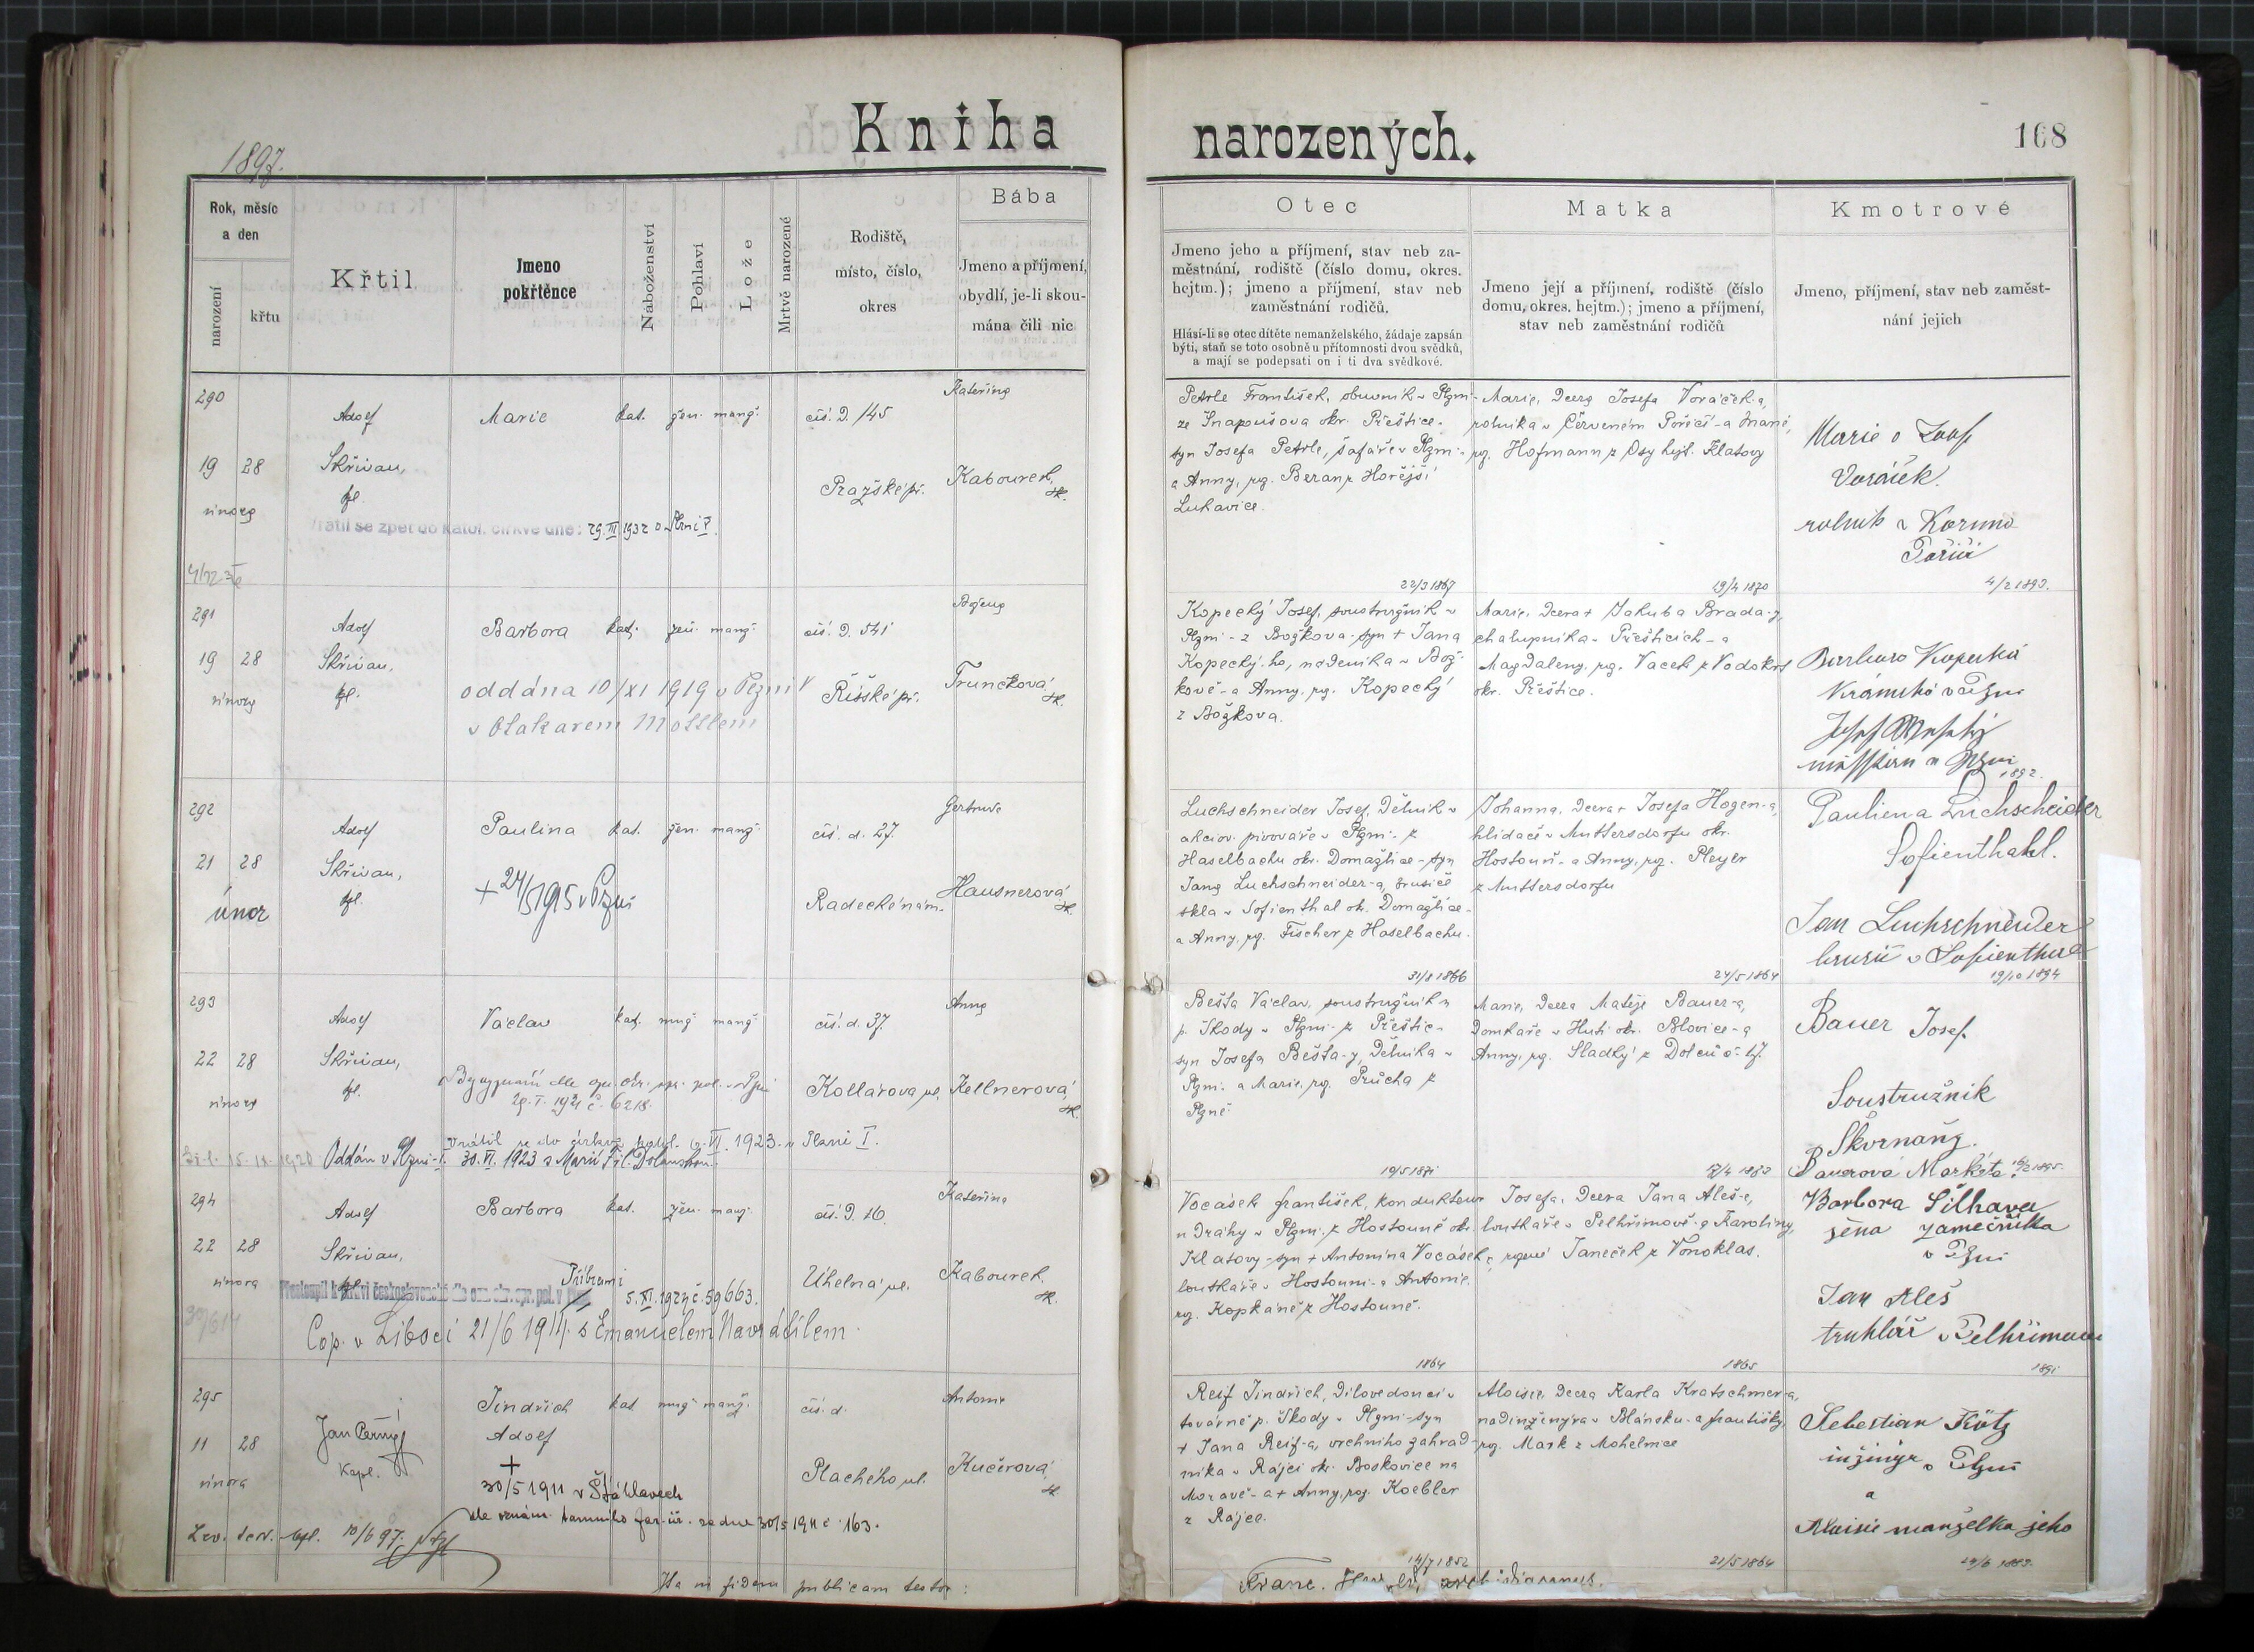 Kniha narozených.
168
1897.
Rok, měsíc
a den
narození
křtu
Křtil
Jmeno
pokřtěnce
Náboženství
Pohlaví
Lože
Mrtvě narozené
Rodiště,
místo, číslo,
okres
Bába
Jmeno a příjmení,
obydlí, je-li skou-
mána čili nic
Otec
Jmeno jeho a příjmení, stav neb za-
městnání, rodiště (číslo domu, okres.
hejtm.); jmeno a příjmení, stav neb
zaměstnání rodičů.
Hlásí-li se otec dítěte nemanželského, žádaje zapsán
býti, staň se toto osobně u přítomnosti dvou svědků,
a mají se podepsati on i ti dva svědkové.
Matka
Jmeno její a příjmení, rodiště (číslo
domu, okres. hejtm.); jmeno a příjmení,
stav neb zaměstnání rodičů
Kmotrové
Jmeno, příjmení, stav neb zaměst-
nání jejich
290
19 28
února
Adolf
Skřivan,
kpl.
Marie kat. žen. manž.
čís. d. 145
Pražské př.
Kateřina
Kabourek,
zk.
Vrátil se zpět do katol. církve dne: 29. III 1932 v Plzni V.
Petrle František, obuvník v Plzni-
ze Snopoušova okr. Přeštice-
syn Josefa Petrle, šafáře v Plzni-
a Anny, roz. Beran z Hořejší
Lukavice.
22/3 1867
Marie, dcera Josefa Voráček-a,
rolníka v Červeném Poříčí-a Marie,
roz. Hofmann z Osy hejt. Klatovy
19/4 1870
Marie a Josef
Voráček
rolník v
Poříčí
4/2 1893.
291
19 28
února
Adolf
Skřivan,
kpl.
Barbora kat. žen. manž.
čís. d. 541
Říšské př.
Božena
Trunečková
zk.
oddána 10/XI 1919 v Plzni V
s Otakarem Mottlem
Kopecký Josef, soustružník v
Plzni-z Božkova-syn + Jana
Kopecký-ho, nádeníka v Bož-
kově-a Anny, roz. Kopecký
z Božkova.
Marie, dcera + Jakuba Brada-y,
chalupníka v Přešticích-a
Magdaleny, roz. Vacek z Vodokrt
okr. Přeštice.
Barbora Kopecká
v Plzni
v Plzni
1892.
292
21 28
únor
Adolf
Skřivan,
kpl.
Paulina kat. žen. manž.
čís. d. 27.
Radeckého nám.
Gertruda
Hausnerová
zk.
+ 24/5 1915 v Plzni
Luchschneider Josef, dělník v
akciov. pivováře v Plzni-z
Haselbachu okr. Domažlice-syn
Jana Luchschneider-a, brusiče
skla v Sofienthal ok. Domažlice-
a Anny, roz. Fischer z Haselbachu.
31/8 1866
Johanna, dcera + Josefa Hogen-a,
hlídače v Muttersdorfu okr.
Hostouň-a Anny, roz. Pleyer
z Muttersdorfu
24/5 1864
Pauliena Luchscheider
Sofienthahl.
Jan Luchschneider
brusič v Sofienthal
19/10 1894
293
22 28
února
Adolf
Skřivan,
kpl.
Václav kat. muž. manž.
čís. d. 37.
Kollárova ul.
Anna
Kellnerová
zk.
Bez vyznání dle ozn. okr. spr. pol. v Plzni
29. I. 1921 č. 6218.
Vrátil se do církve katol. 6. VI. 1923. v Plzni I.
Oddán v Plzni-I. 30. VI. 1923 s Marií Fil. Dolanskou.
Bešta Václav, soustružník u
p. Škody v Plzni-z Přeštic-
syn Josefa Bešta-y, dělníka v
Plzni a Marie, roz. Průcha z
Plzně
19/5 1871
Marie, dcera Matěje Bauer-a,
domkáře v Huti okr. Blovice-a
Anny, roz. Sladký z Dolců č. 17.
Bauer Josef.
Soustružník
Škvrňany.
Bauerová Markéta
294
22 28
února
Adolf
Skřivan,
kpl.
Barbora kat. žen. manž.
čís. d. 16
Úhelná ul.
Kateřina
Kabourek.
zk.
Přestoupil k církvi československé dle ozn. okr. spr. pol. v Příbrami
5. XI. 1924 č. 59663.
Cop. v Liboci 21/6 1914. s Emanuelem Navrátilem.
Vocásek František, kondukteur
u dráhy v Plzni-z Hostouně okr.
Klatovy-syn + Antonína Vocásek-a,
loutkáře v Hostouni-a Antonie,
roz. Kopkáně z Hostouně.
1864
Josefa, dcera Jana Aleš-e,
loutkáře v Pelhřimově-a Karoliny,
rozené Janeček z Vonoklas.
1865
Barbora Šilhavá
žena zamečníka
v Plzni
Jan Aleš
truhlář v Pelhřimově
1891
295
11 28
února
Jan Černý
Kapl.
Jindřich kat. muž. manž.
Adolf
čís. d.
Placheho ul.
Antonie
Kučerová
zk.
+
30/5 1911 v Šťáhlavech
dle oznám. tamního far. úř. ze dne 30/5 1911 č. 163.
10/6 97.
Reif Jindřich, dílovedoucí v
továrně p. Škody v Plzni-syn
+ Jana Reif-a, vrchního zahrad-
níka v Rájci okr. Boskovice na
Moravě-a + Anny, roz. Koebler
z Rájce.
14/7 1852
Aloisie, dcera Karla Kratschmer-a,
nadinženýra v Blánsku-a Františky,
roz. Mark z Mohelnice
21/5 1864
Sebestian Kötz
inžinýr v Plzni
a
Aloisie manželka jeho
29/6 1883.
Ita in fidem publicam testor:
Franc. archidiaconus.